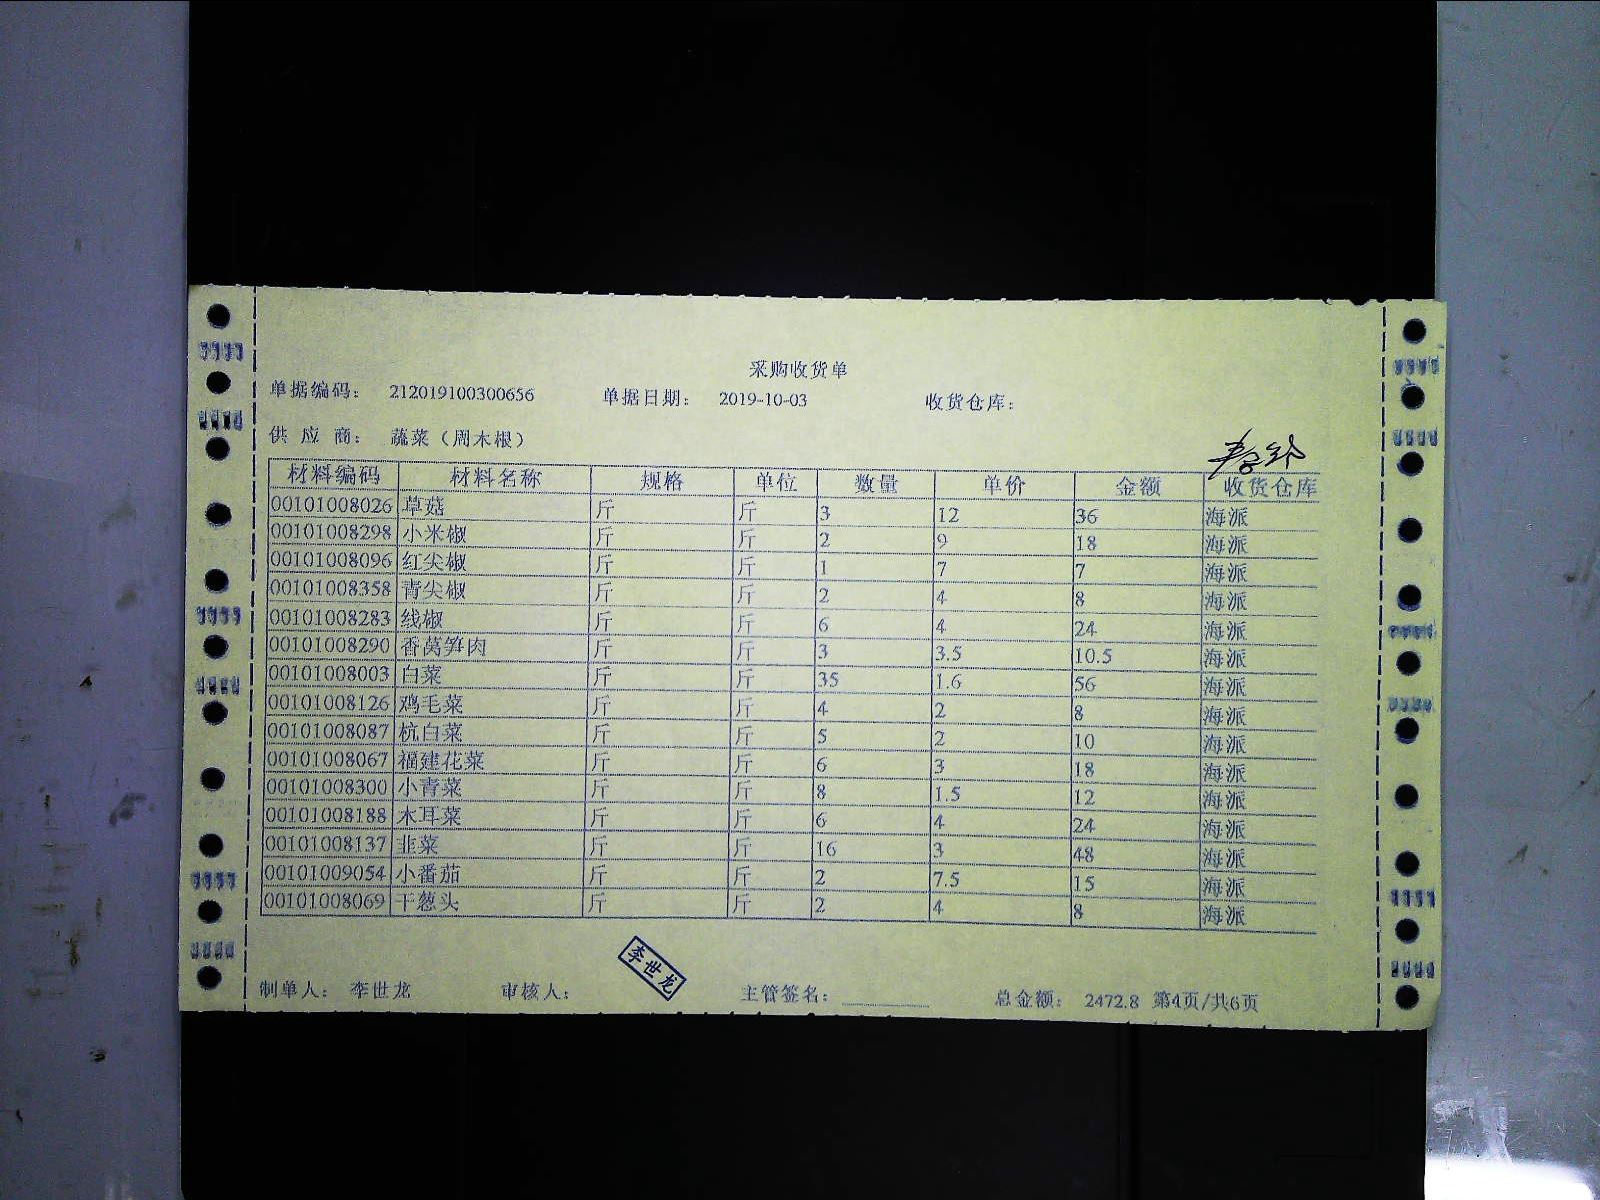 采购收货单
单据编码： 212019100300656 单据日期： 2019-10-03 收货仓库：
供 应 商： 蔬菜（周木根）
材料编码 材料名称 规格 单位 数量 单价 金额 收货仓库
00101008026 草菇 斤 斤 3 12 36 海派
00101008298 小米椒 斤 斤 2 9 18 海派
00101008096 红尖椒 斤 斤 1 7 7 海派
00101008358 青尖椒 斤 斤 2 4 8 海派
00101008283 线椒 斤 斤 6 4 24 海派
00101008290 香莴笋肉 斤 斤 3 3.5 10.5 海派
00101008003 白菜 斤 斤 35 1.6 56 海派
00101008126 鸡毛菜 斤 斤 4 2 8 海派
00101008087 杭白菜 斤 斤 5 2 10 海派
00101008067 福建花菜 斤 斤 6 3 18 海派
00101008300 小青菜 斤 斤 8 1.5 12 海派
00101008188 木耳菜 斤 斤 6 4 24 海派
00101008137 韭菜 斤 斤 16 3 48 海派
00101009054 小番茄 斤 斤 2 7.5 15 海派
00101008069 干葱头 斤 斤 2 4 8 海派
李世龙
制单人： 李世龙 审核人： 主管签名： 总金额： 2472.8 第4页/共6页